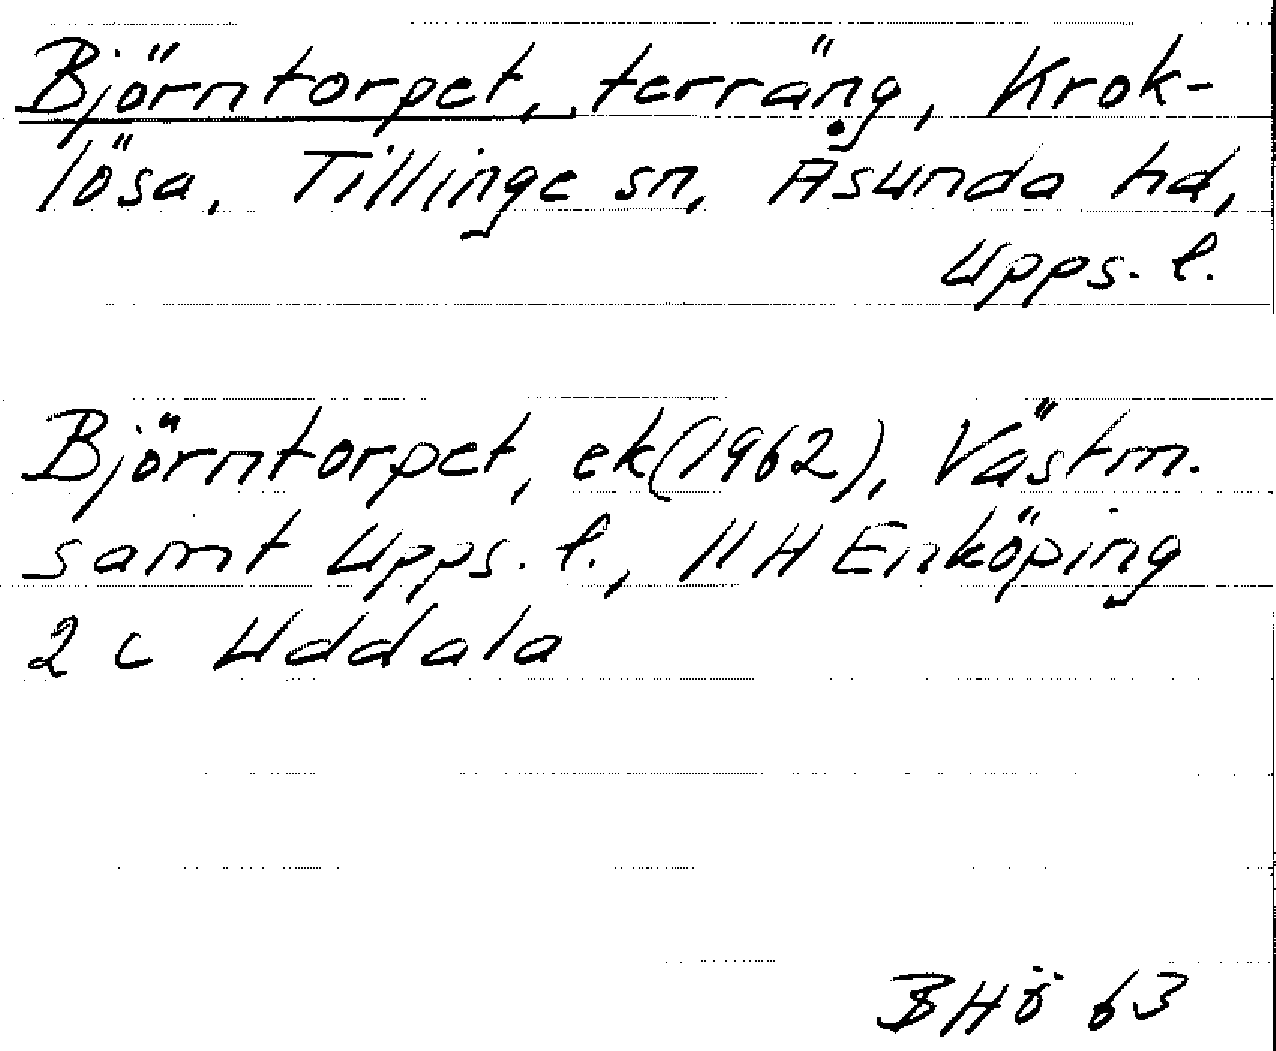 Björntorpet, terräng, Krok-
lösa, Tillinge sn, Åsunda hd,
Upps. l.
Björntorpet, ek(1962), Västm.
samt Upps. l., 11H Enköping
2 c Uddala
BHö 63